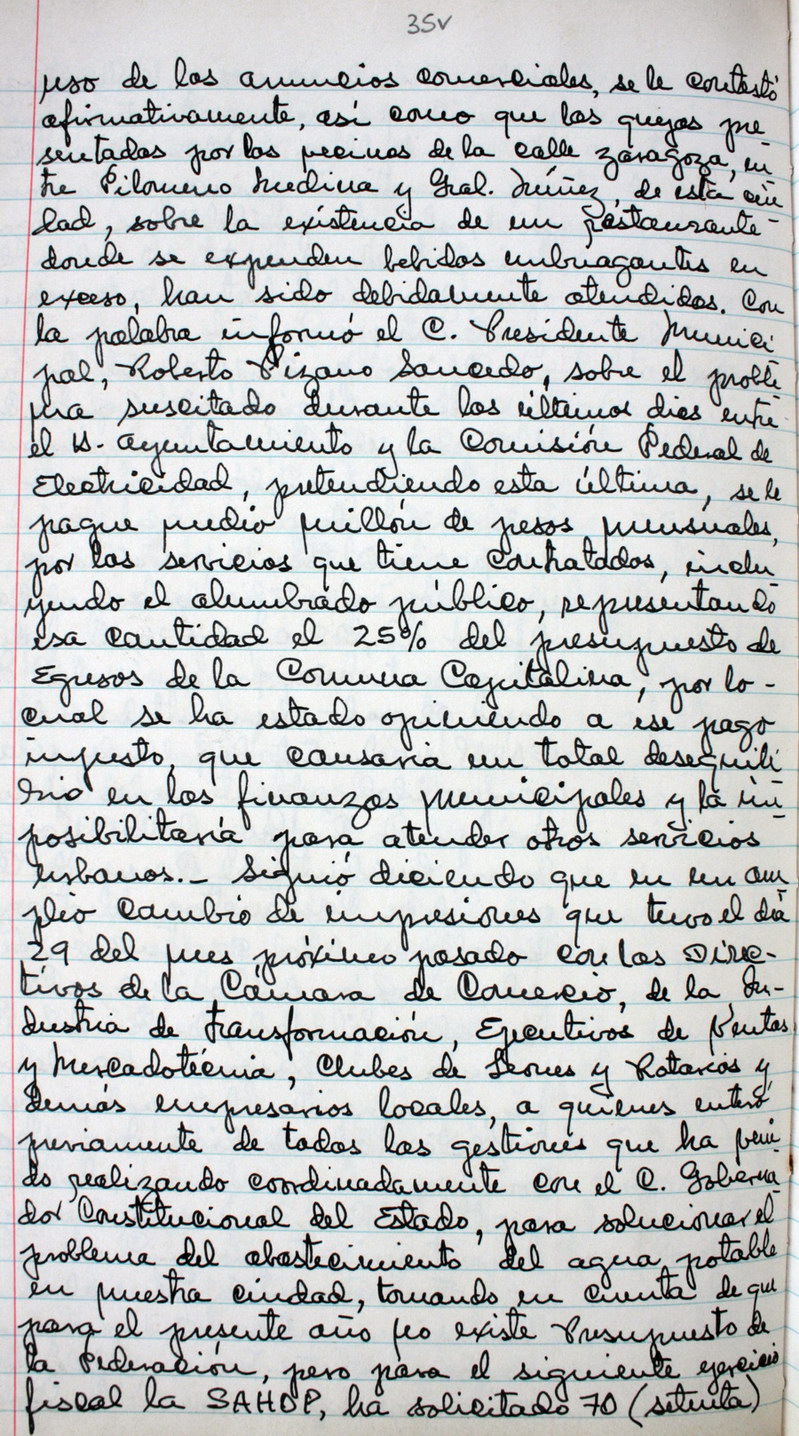 35v
uso de los anuncios comerciales, se le contestó
afirmativamente, así como que las quejas pre
sentadas por los vecinos de la calle Zaragoza, en
tre Filomeno Medina y Gral. Núñez, de esta ciu
dad, sobre la existencia de un restaurante
donde se expenden bebidas embriagantes en
exceso, han sido debidamente atendidas. Con
la palabra informó el C. Presidente Munici
pal, Roberto Pizano Saucedo, sobre el proble
ma suscitado durante los últimos días entre
el H. Ayuntamiento y la Comisión Federal de
Electricidad, pretendiendo esta última, se le
pague medio millón de pesos mensuales,
por los servicios que tiene contratados, inclu
yendo el alumbrado público, representando
esa cantidad el 25% del presupuesto de
Egresos de la Comuna Capitalina, por lo-
cual se ha estado oponiendo a ese pago
injusto, que causaría un total desequili
brio en las finanzas municipales y la im
posibilitaría para atender otros servicios
urbanos.- Siguió diciendo que en un am
plio cambio de impresiones que tuvo el día
29 del mes próximo pasado con los Direc-
tivos de la Cámara de Comercio, de la In-
dustria de Transformación, Ejecutivos de Ventas
y Mercadotécnia, Clubes de Leones y Rotarios y
demás empresarios locales, a quienes enteró
previamente de todas las gestiones que ha veni
do realizando coordinadamente con el C. Goberna
dor Constitucional del Estado, para solucionar el
problema del abastecimiento del agua potable
en nuestra ciudad, tomando en cuenta de que
para el presente año no existe Presupuesto de
la Federación, pero para el siguiente ejercicio
fiscal la SAHOP, ha solicitado 70 (setenta)